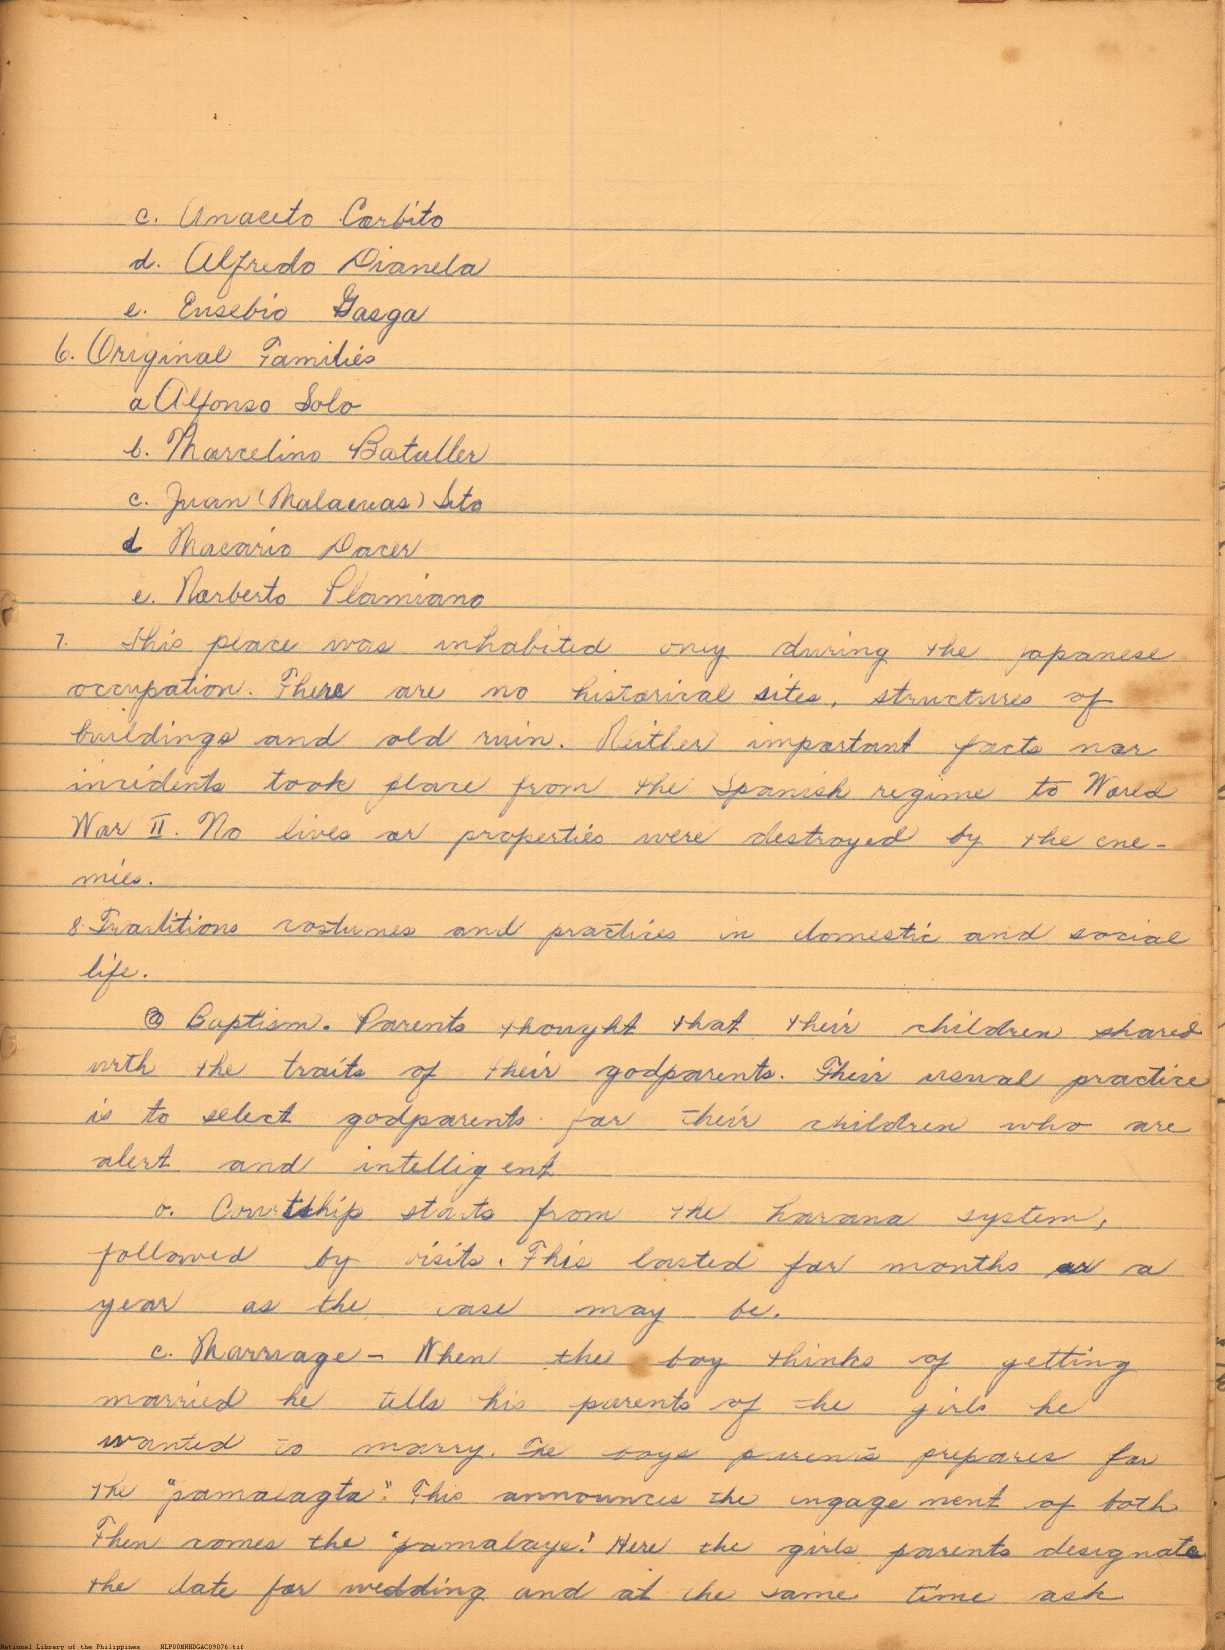 c. Anaceto Corbito
d. Alfredo Dianela
e. Eusebio Gasga
6. Original Families
a Alfonso Solo
b. Marcelino Bataller
c. Juan (Malacuas) Sito
d Macario Dacer
e. Norberto Plamiano
7. This place was inhabited only during the japanese
occupation. There are no historical sites, structures of
buildings and old ruin. Neither important facts nor
incidents took place from the Spanish regime to World
War II. No lives or properties were destroyed by the ene-
mies.
8. Traditions costumes and practices in domestic and social
life.
a Baptism. Parents thought that their children shared
with the traits of their godparents. Their usual practice
is to select godparents for their children who are
alert and intelligent
b. Courtship starts from the harana system,
followed by visits. This lasted for months or a
year as the case may be.
c. Marriage - When the boy thinks of getting
married he tells his parents of the girls he
wanted to marry. The boys parents prepares for
the "pamacagta". This announces the engagement of both
Then comes the "pamalaye." Here the girls parents designate
the date for wedding and at the same time ask
National Library of the Philippines NLPOOMHHDGAC09076.tif